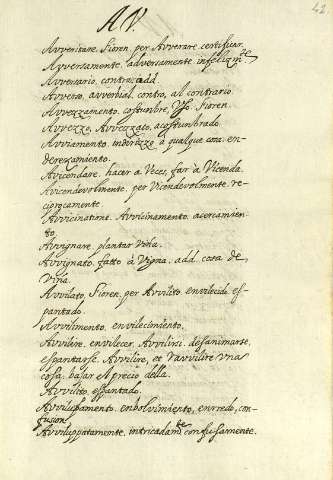 42
AV.
Avveritare. Fioren. per Avverare. certificar.
Avversamente. adversamente. infelizmte
Avversario. contra: add.
Avverso. avverbial. contro, al contrario
Avvezzamento. costumbre, Uso. Fioren.
Avvezzo. Avvezzato, acostumbrado.
Avviamento. indirizzo à qualque cosa. en-
derezamiento.
Avicendare. hacer a Veces, far à Vicenda.
Avicendevolmente. per Vicendevolmente. re-
ciprocamente.
Avvicinatione. Avvicinamento. acercamien-
to.
Avvignare. plantar Viña.
Avvignato. fatto à Vigna. add. cosa de
Viña.
Avvilato, Fioren. per Avvilito. envilecido es-
pantado.
Avvilimento. envilecimiento.
Avvilire. envilecer. Avvilirsi. desanimarse.
espantarse. Avvilire, et ravvilire una
cosa. bajar el precio della.
Avvilito. espantado.
Avviluppamento. enbolvimiento, enrredo, con-
fusion.
Avviluppatamente. intricadamte confusamente.